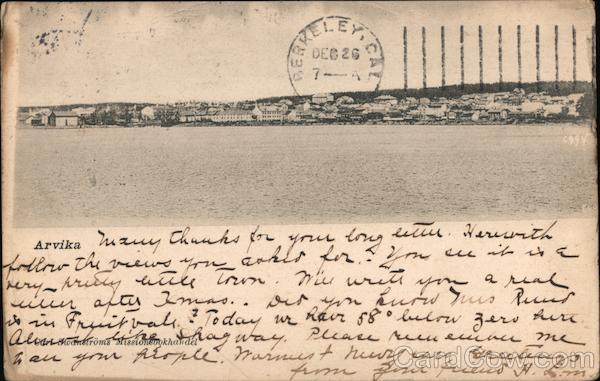 BERKELEY, CAL.
DEC 26
7—A
Arvika
Many thanks for your long letter. Herewith
follow the views you asked for. You see it is a
very pretty little town. Will write you a real
letter after Xmas.. Did you know Miss Ruud
is in Fruitvale? Today we have 58° below zero here.
Almost like Skagway. Please remember me
Swanströms Missionsbokhandel
to all your people. Warmest New Year Greetings
from your friend A.
CardCow.com